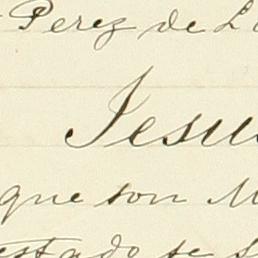 Perez de L
Jesus
que son M
estado se s